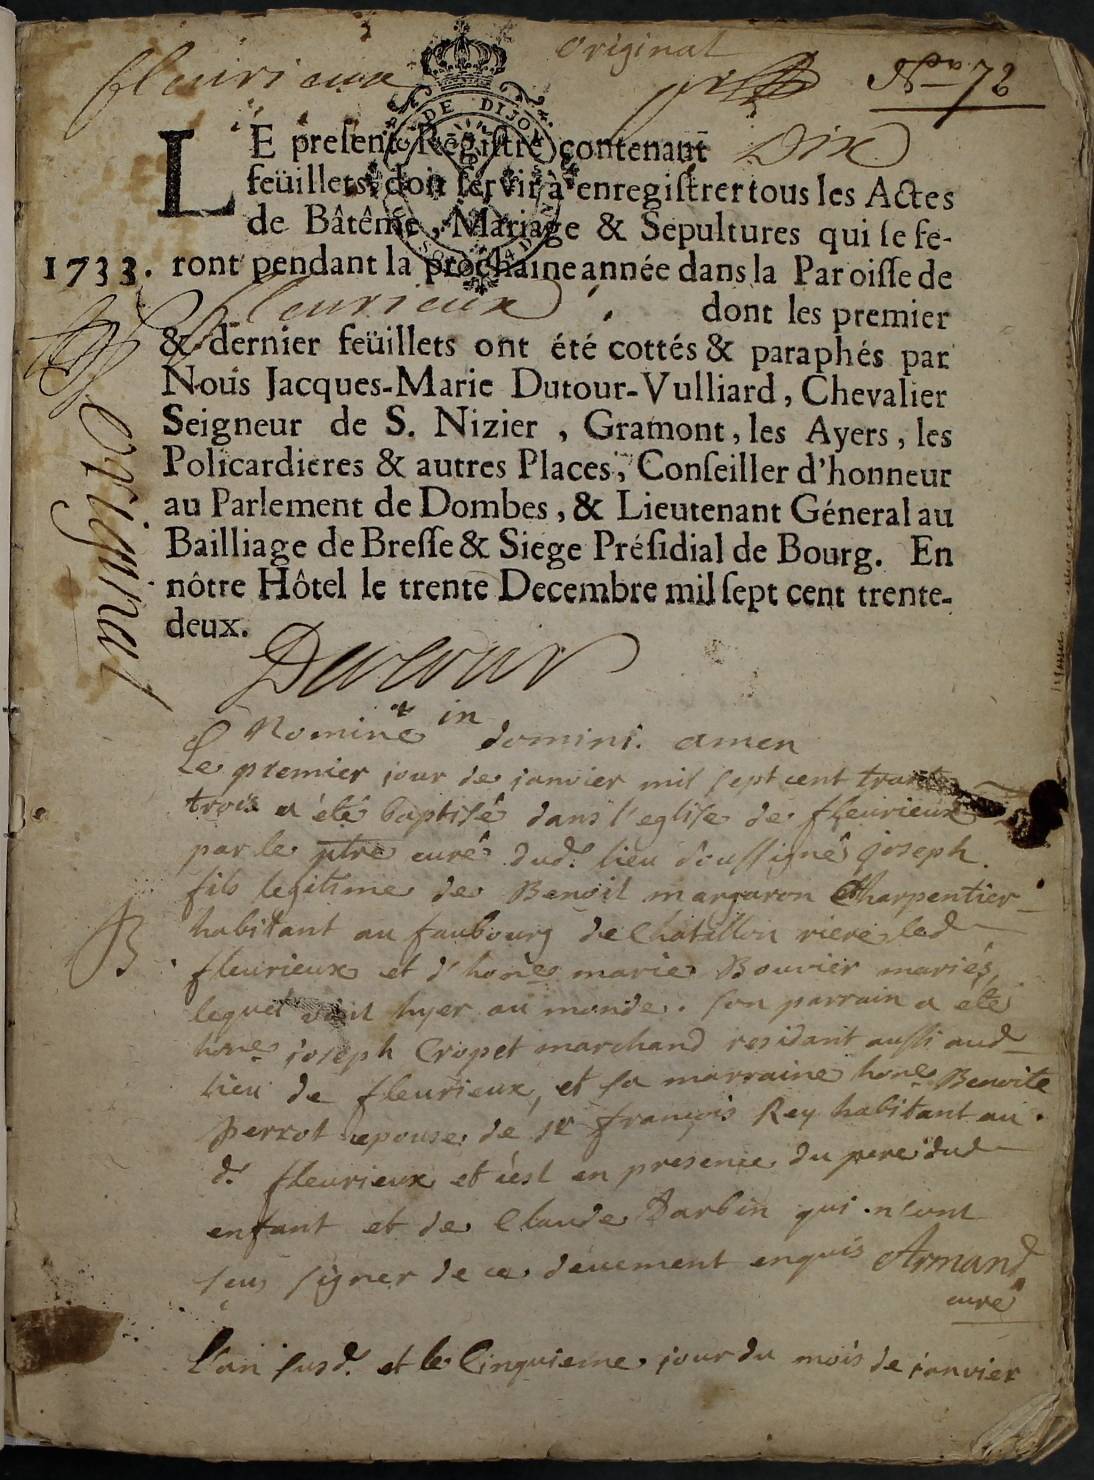 Original
fleurieux N.ro 72
LE preſent Regiſtre contenant Dix
feüillets, doit ſervir à enregiſtrer tous les Actes
de Bâtême, Mariage & Sepultures qui ſe fe-
1733. ront pendant la prochaine année dans la Paroiſſe de
fleurieux dont les premier
& dernier feüillets ont été cottés & paraphés par
Nous Jacques-Marie Dutour-Vulliard, Chevalier
Seigneur de S. Nizier, Gramont, les Ayers, les
Policardieres & autres Places, Conſeiller d'honneur
au Parlement de Dombes, & Lieutenant Géneral au
Bailliage de Breſſe & Siege Préſidial de Bourg. En
nôtre Hôtel le trente Decembre mil ſept cent trente-
deux.
original
Dutour
DE DIJON
in Nomine domini. amen
Le premier jour de janvier mil sept cent trante
trois a été baptisé dans l'eglise de fleurieux
par le ptre curé dud. lieu soussigné joseph
fils legitime de Benoit margaron Charpentier
habitant au faubourg de Chatillon riere led
fleurieux et d'hone marie Bouvier mariés,
lequel vint hyer au monde. son parrain a été
hone joseph Cropet marchand residant aussi aud
lieu de fleurieux, et sa marraine hone Benoite
perrot epouse de sr françois Rey habitant au
d. fleurieux et c'est en presence du pere dud
enfant et de Claude Barbin qui n'ont
sçus signer de ce deuement enquis Armand
curé
L'an susd. et le Cinquieme jour du mois de janvier